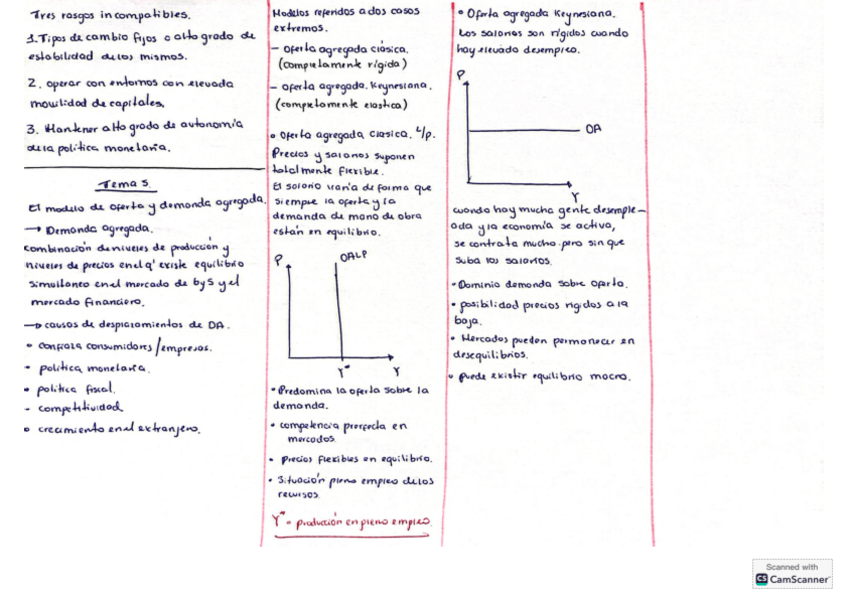 Tres rasgos incompatibles.
1. Tipos de cambio fijos o alto grado de
estabilidad de los mismos.
2. operar con entornos con elevada
movilidad de capitales.
3. Mantener alto grado de autonomía
de la política monetaria.
Tema 5
El modelo de oferta y demanda agregada.
→ Demanda agregada.
combinación de niveles de producción y
niveles de precios en el q' existe equilibrio
simultaneo en el mercado de b y S y el
mercado financiero.
→ causas de desplazamientos de DA.
• confianza consumidores/empresas.
• política monetaria.
• política fiscal.
- competitividad
• crecimiento en el extranjero.
Modelos referidos a dos casos
extremos.
- oferta agregada clásica.
(completamente rígida)
- oferta agregada. Keynesiana.
(completamente elastica)
• Oferta agregada clasica. L/p.
Precios y salarios suponen
totalmente flexible.
El salario varía de forma que
siempre la oferta y la
demanda de mano de obra
están en equilibrio.
P
OALP
Y*
Y
• Predomina la oferta sobre la
demanda.
• competencia perfecta en
mercados
• Precios flexibles en equilibrio.
• Situación pleno empleo de los
recursos.
Y* = producción en pleno empleo
• Oferta agregada Keynesiana.
Los salarios son rígidos cuando
hay elevado desempleo.
P
OA
Y
cuando hay mucha gente desemple-
ada y la economía se activa,
se contrata mucho pero sin que
suba los salarios.
• Dominio demanda sobre oferta.
• posibilidad precios rígidos a la
baja.
• Mercados pueden permanecer en
desequilibrios.
• puede existir equilibrio macro.
Scanned with
CS CamScanner